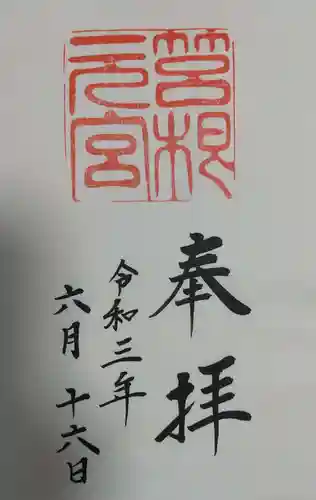 筥根
元宮
奉拝
令和三年
六月十六日